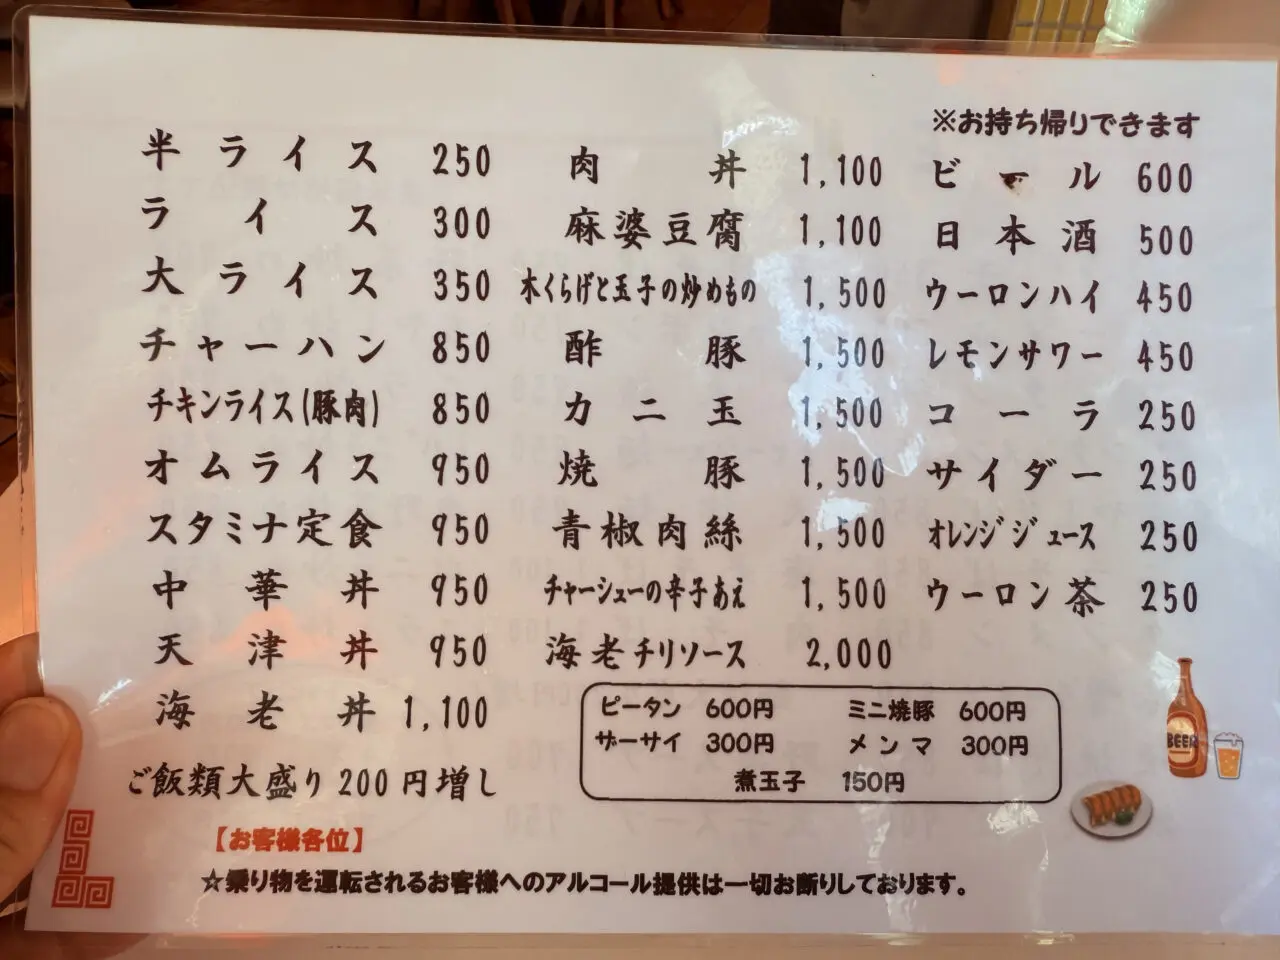 ※お持ち帰りできます
半ライス 250
ライス 300
大ライス 350
チャーハン 850
チキンライス(豚肉) 850
オムライス 950
スタミナ定食 950
中華丼 950
天津丼 950
海老丼 1,100
ご飯類大盛り200円増し
肉丼 1,100
麻婆豆腐 1,100
木くらげと玉子の炒めもの 1,500
酢豚 1,500
カニ玉 1,500
焼豚 1,500
青椒肉絲 1,500
チャーシューの辛子あえ 1,500
海老チリソース 2,000
ビール 600
日本酒 500
ウーロンハイ 450
レモンサワー 450
コーラ 250
サイダー 250
オレンジジュース 250
ウーロン茶 250
ピータン 600円 ミニ焼豚 600円
ザーサイ 300円 メンマ 300円
煮玉子 150円
BEER
【お客様各位】
☆乗り物を運転されるお客様へのアルコール提供は一切お断りしております。